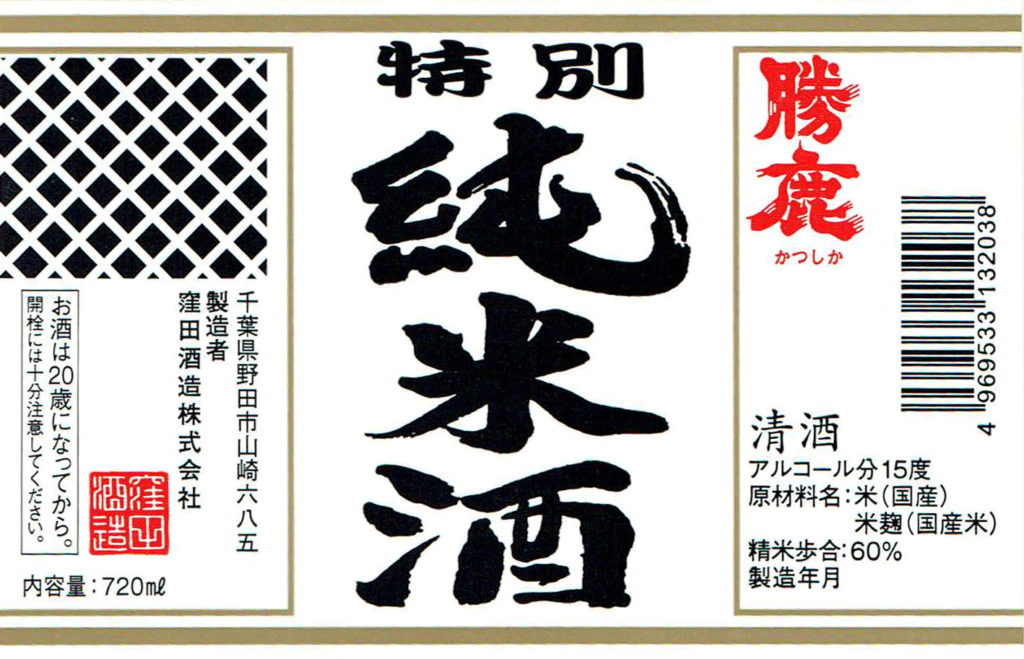 特別
純米酒
勝鹿
かつしか
4 969533 132038
清酒
アルコール分15度
原材料名：米（国産）
米麹（国産米）
精米歩合：60%
製造年月
千葉県野田市山崎六八五
製造者
窪田酒造株式会社
窪田
酒造
お酒は20歳になってから。
開栓には十分注意してください。
内容量：720㎖